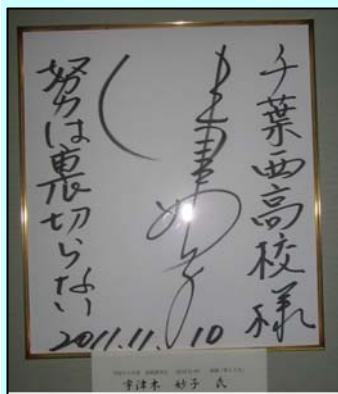 千葉西高校様
宇津木妙子
努力は裏切らない
2011.11.10
宇津木 妙子 氏